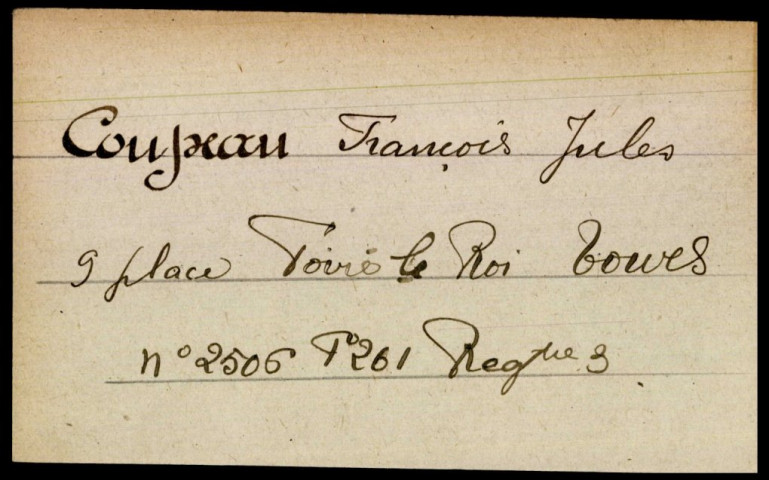 Coupeau François Jules
9 place Foire le Roi Tours
n° 2506 F° 261 Regtre 3